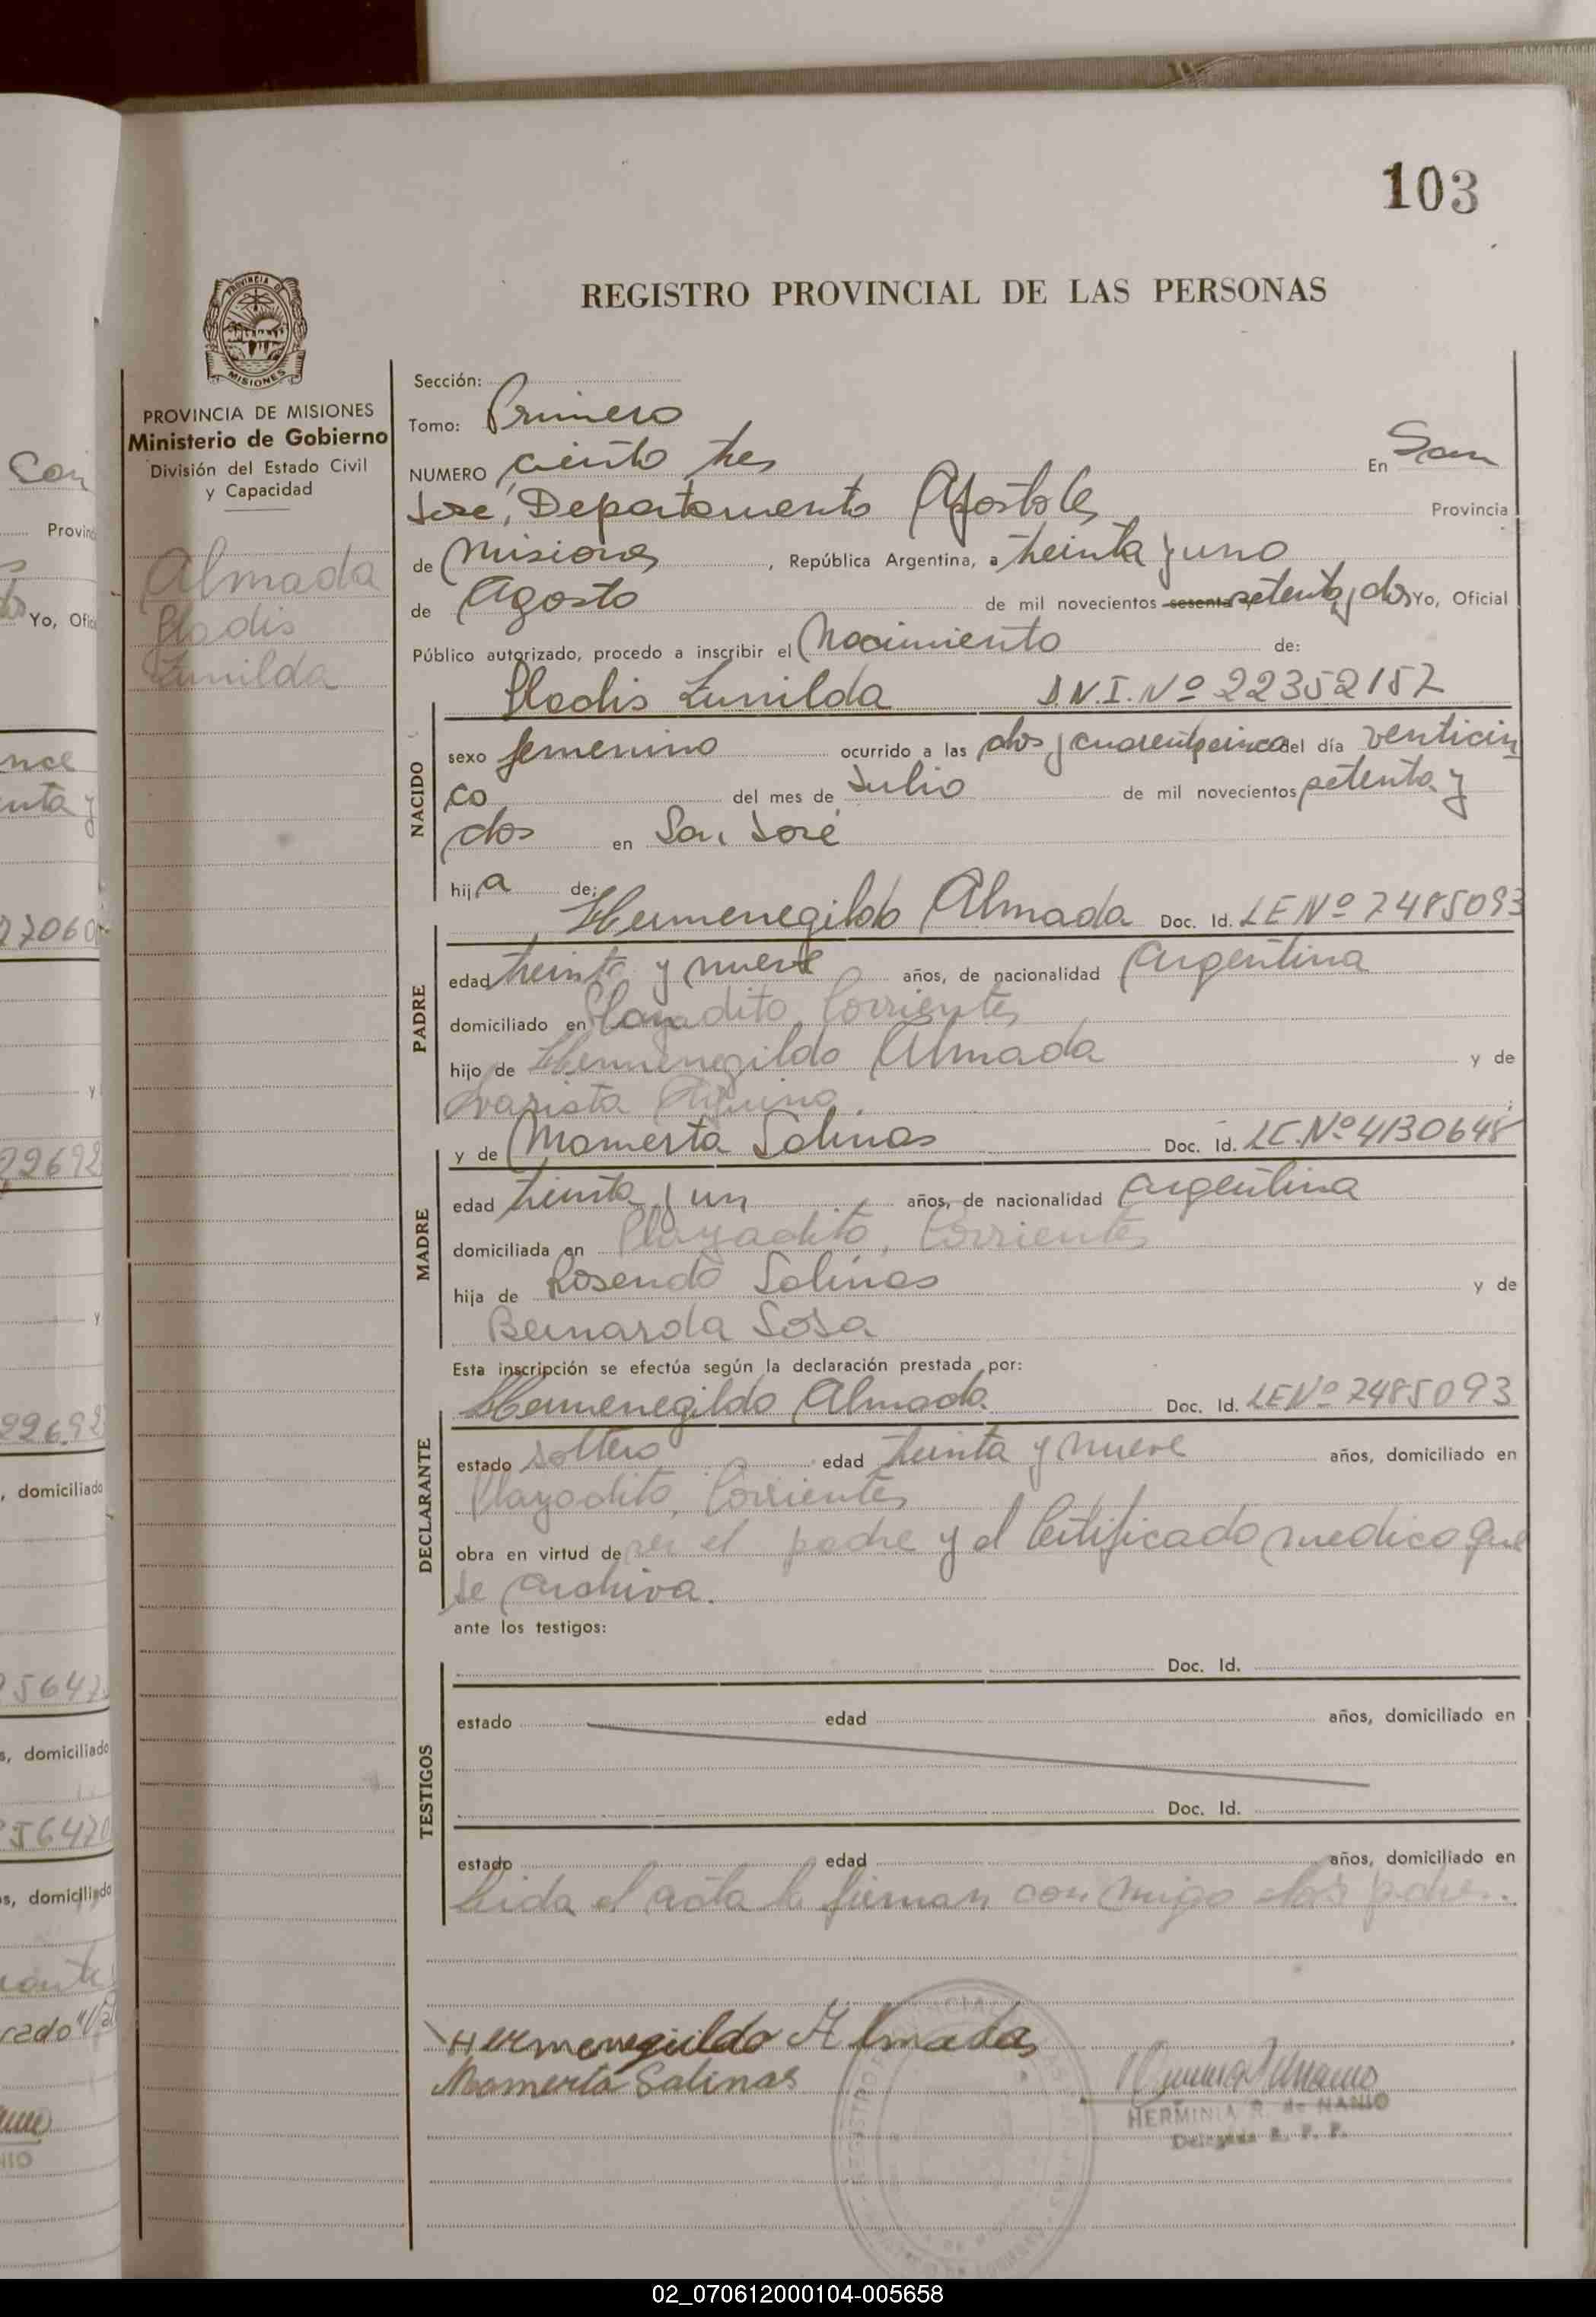 103
PROVINCIA DE
MISIONES
REGISTRO PROVINCIAL DE LAS PERSONAS
PROVINCIA DE MISIONES
Ministerio de Gobierno
División del Estado Civil
y Capacidad
Almada
Gladis
Zunilda
Sección:
Tomo: Primero
NUMERO ciento tres En San
José, Departamento Apóstoles Provincia
de Misiones, República Argentina, a treinta y uno
de Agosto de mil novecientos sesenta setenta y dos Yo, Oficial
Público autorizado, procedo a inscribir el Nacimiento de:
Gladis Zunilda D.N.I. Nº 22352157
NACIDO
sexo femenino ocurrido a las dos y cuarenta y cinco del día venticin
co del mes de Julio de mil novecientos setenta y
dos en San José
hija de:
Hermenegildo Almada Doc. Id. LE Nº 7485093
PADRE
edad treinta y nueve años, de nacionalidad Argentina
domiciliado en Playadito, Corrientes
hijo de Hermenegildo Almada y de
Evarista Aquino.
y de Mamerta Salinas Doc. Id. LC. Nº 4130648
MADRE
edad treinta y un años, de nacionalidad Argentina
domiciliada en Playadito, Corrientes
hija de Rosendo Salinas y de
Bernarda Sosa
Esta inscripción se efectúa según la declaración prestada por:
Hermenegildo Almada Doc. Id. LE Nº 7485093
DECLARANTE
estado soltero edad treinta y nueve años, domiciliado en
Playadito, Corrientes
obra en virtud de ser el padre y el Certificado medico que
se archiva.
ante los testigos:
Doc. Id.
TESTIGOS
estado edad años, domiciliado en
Doc. Id.
estado edad años, domiciliado en
Leida el acta la firman con migo los padres.
Hermenegildo Almada
Mamerta Salinas
HERMINIA R. de NANIO
Delegada R. P. P.
02_070612000104-005658